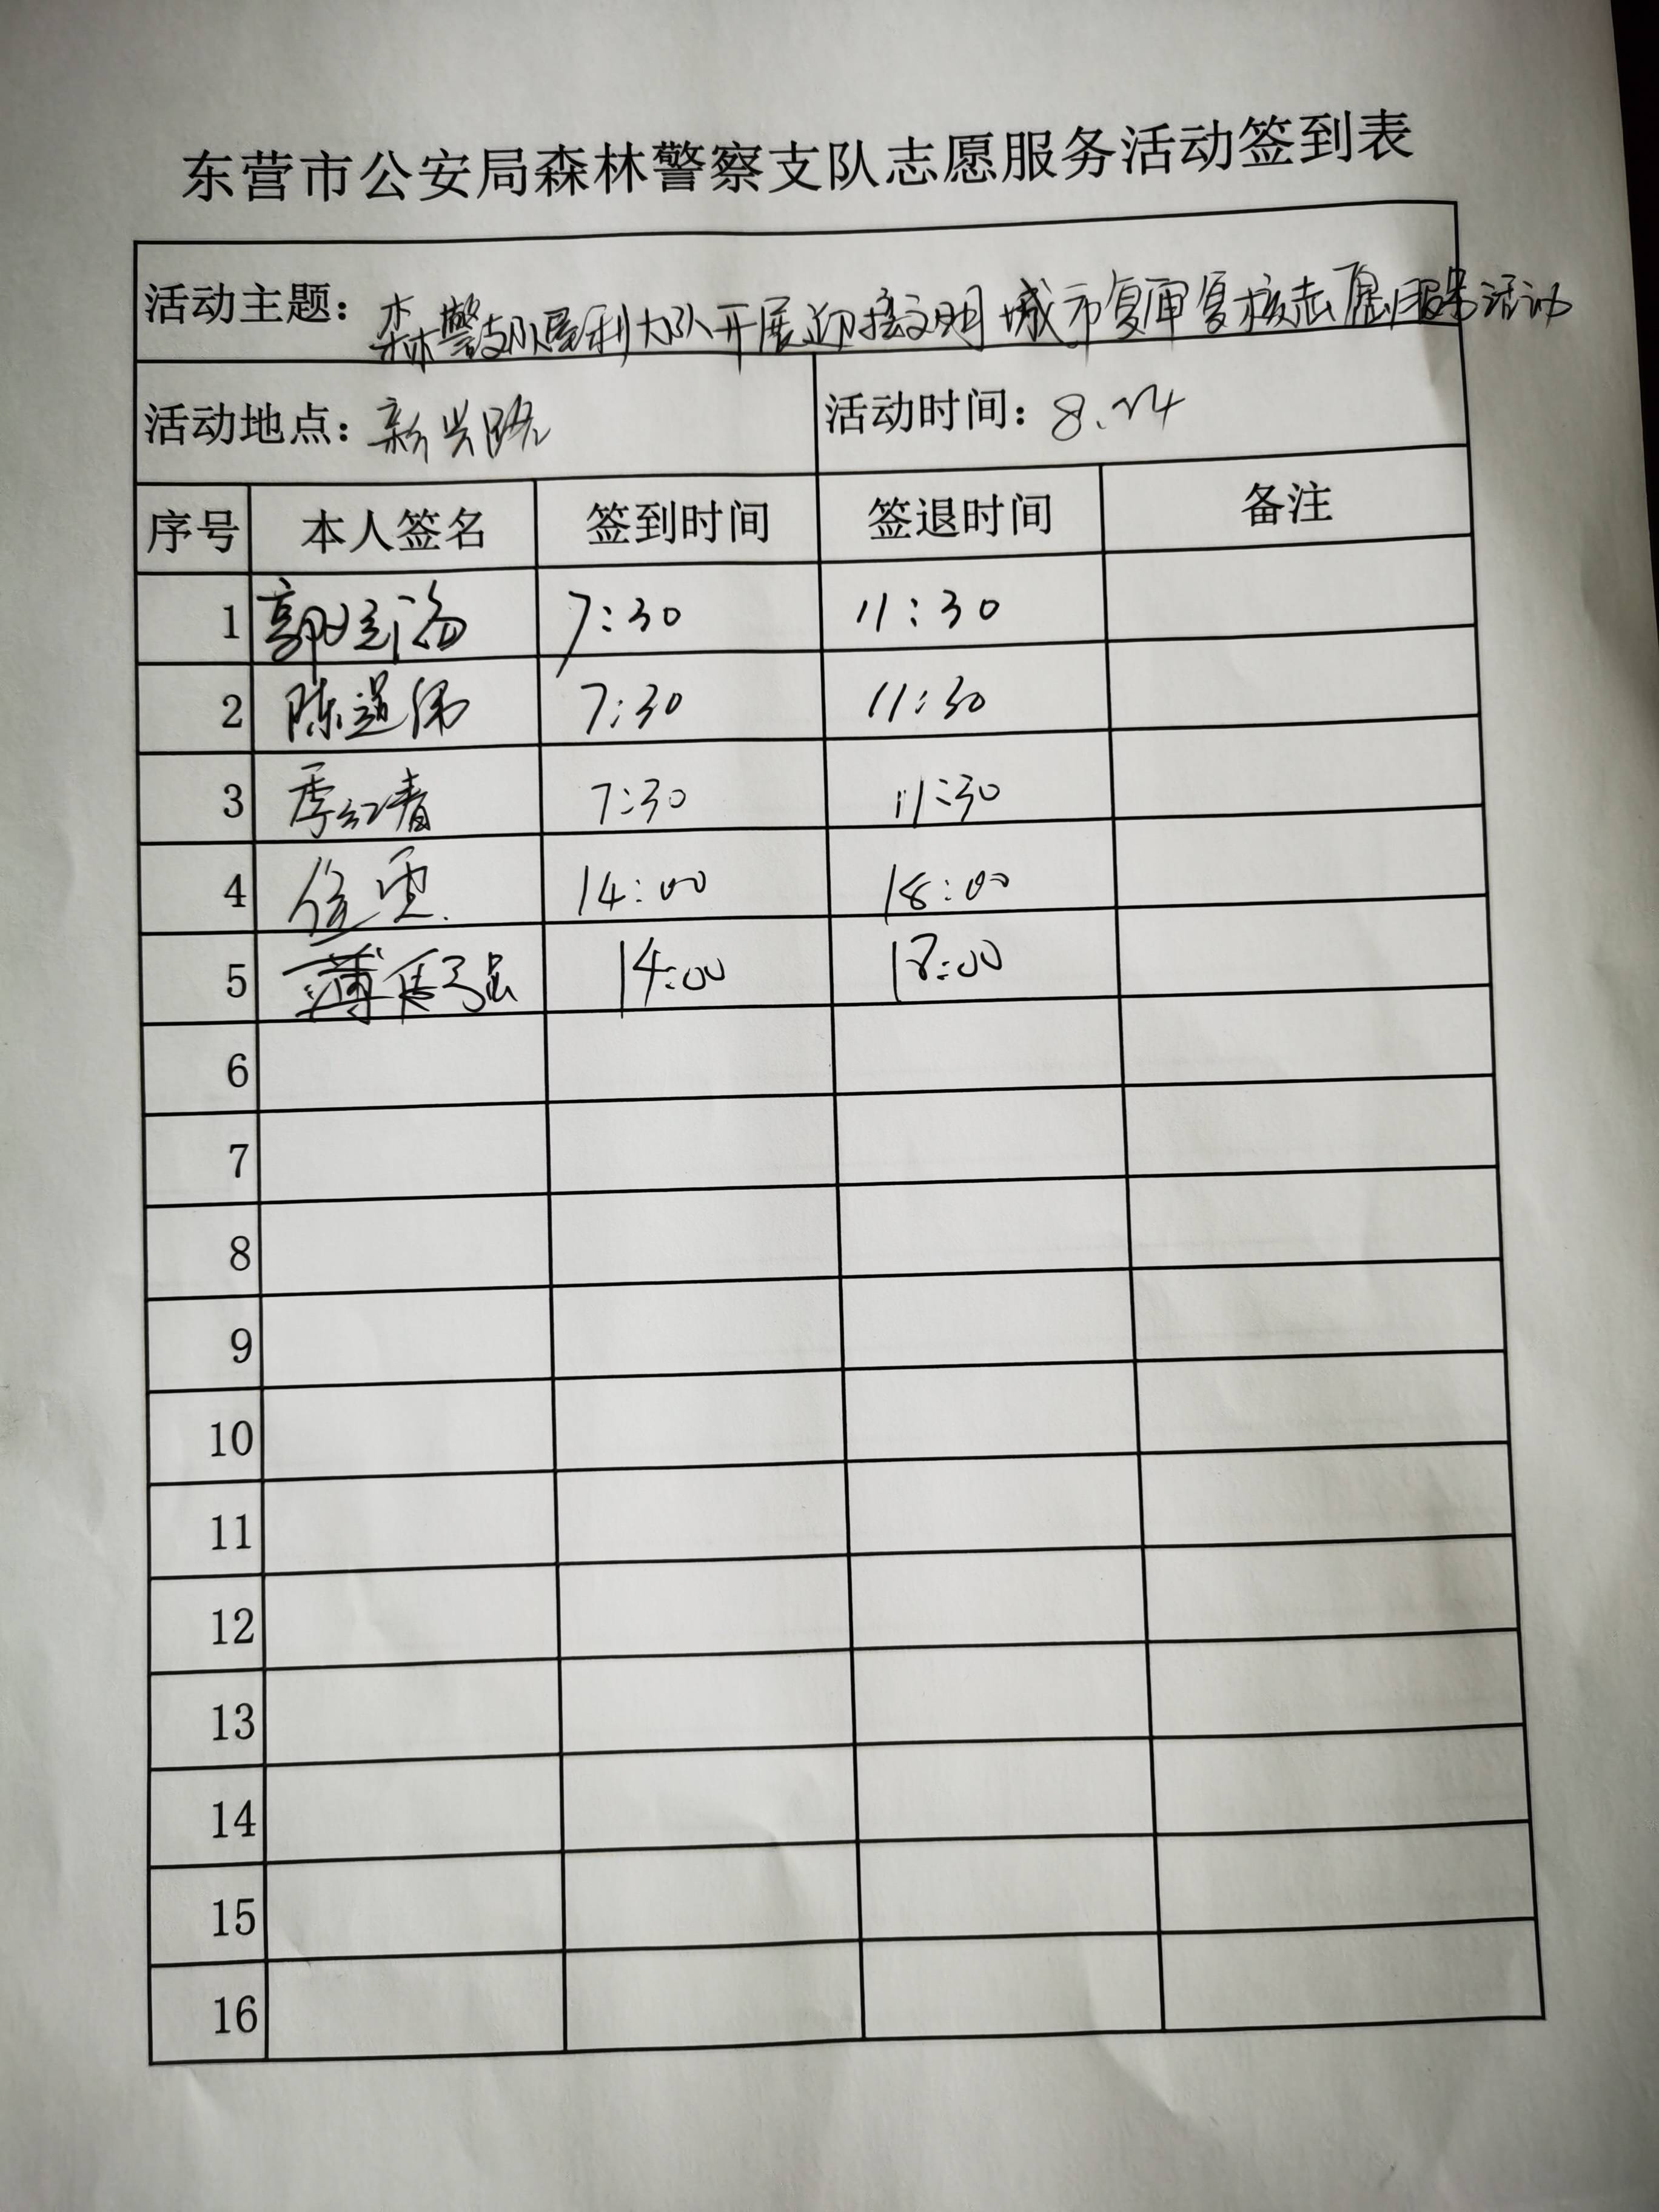 东营市公安局森林警察支队志愿服务活动签到表
活动主题：森林警察支队垦利大队开展迎接文明城市复审复核志愿服务活动
活动地点：新兴路 活动时间：8.24
序号 本人签名 签到时间 签退时间 备注
1 郭 海 7:30 11:30
2 陈道伟 7:30 11:30
3 季红青 7:30 11:30
4 14:00 18:00
5 薄 强 14:00 18:00
6
7
8
9
10
11
12
13
14
15
16